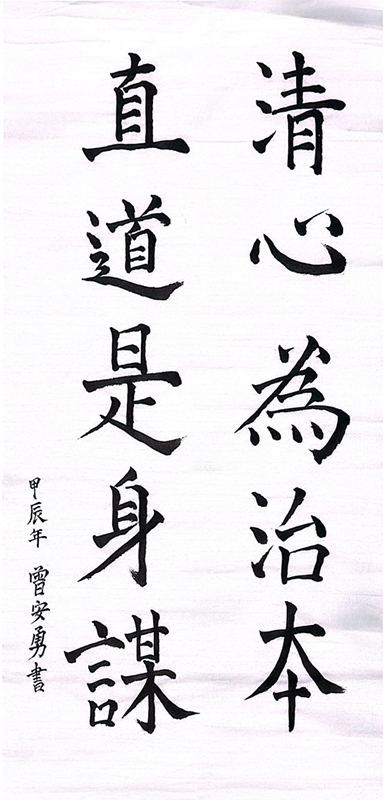 清心為治本
直道是身謀
甲辰年 曾安勇書